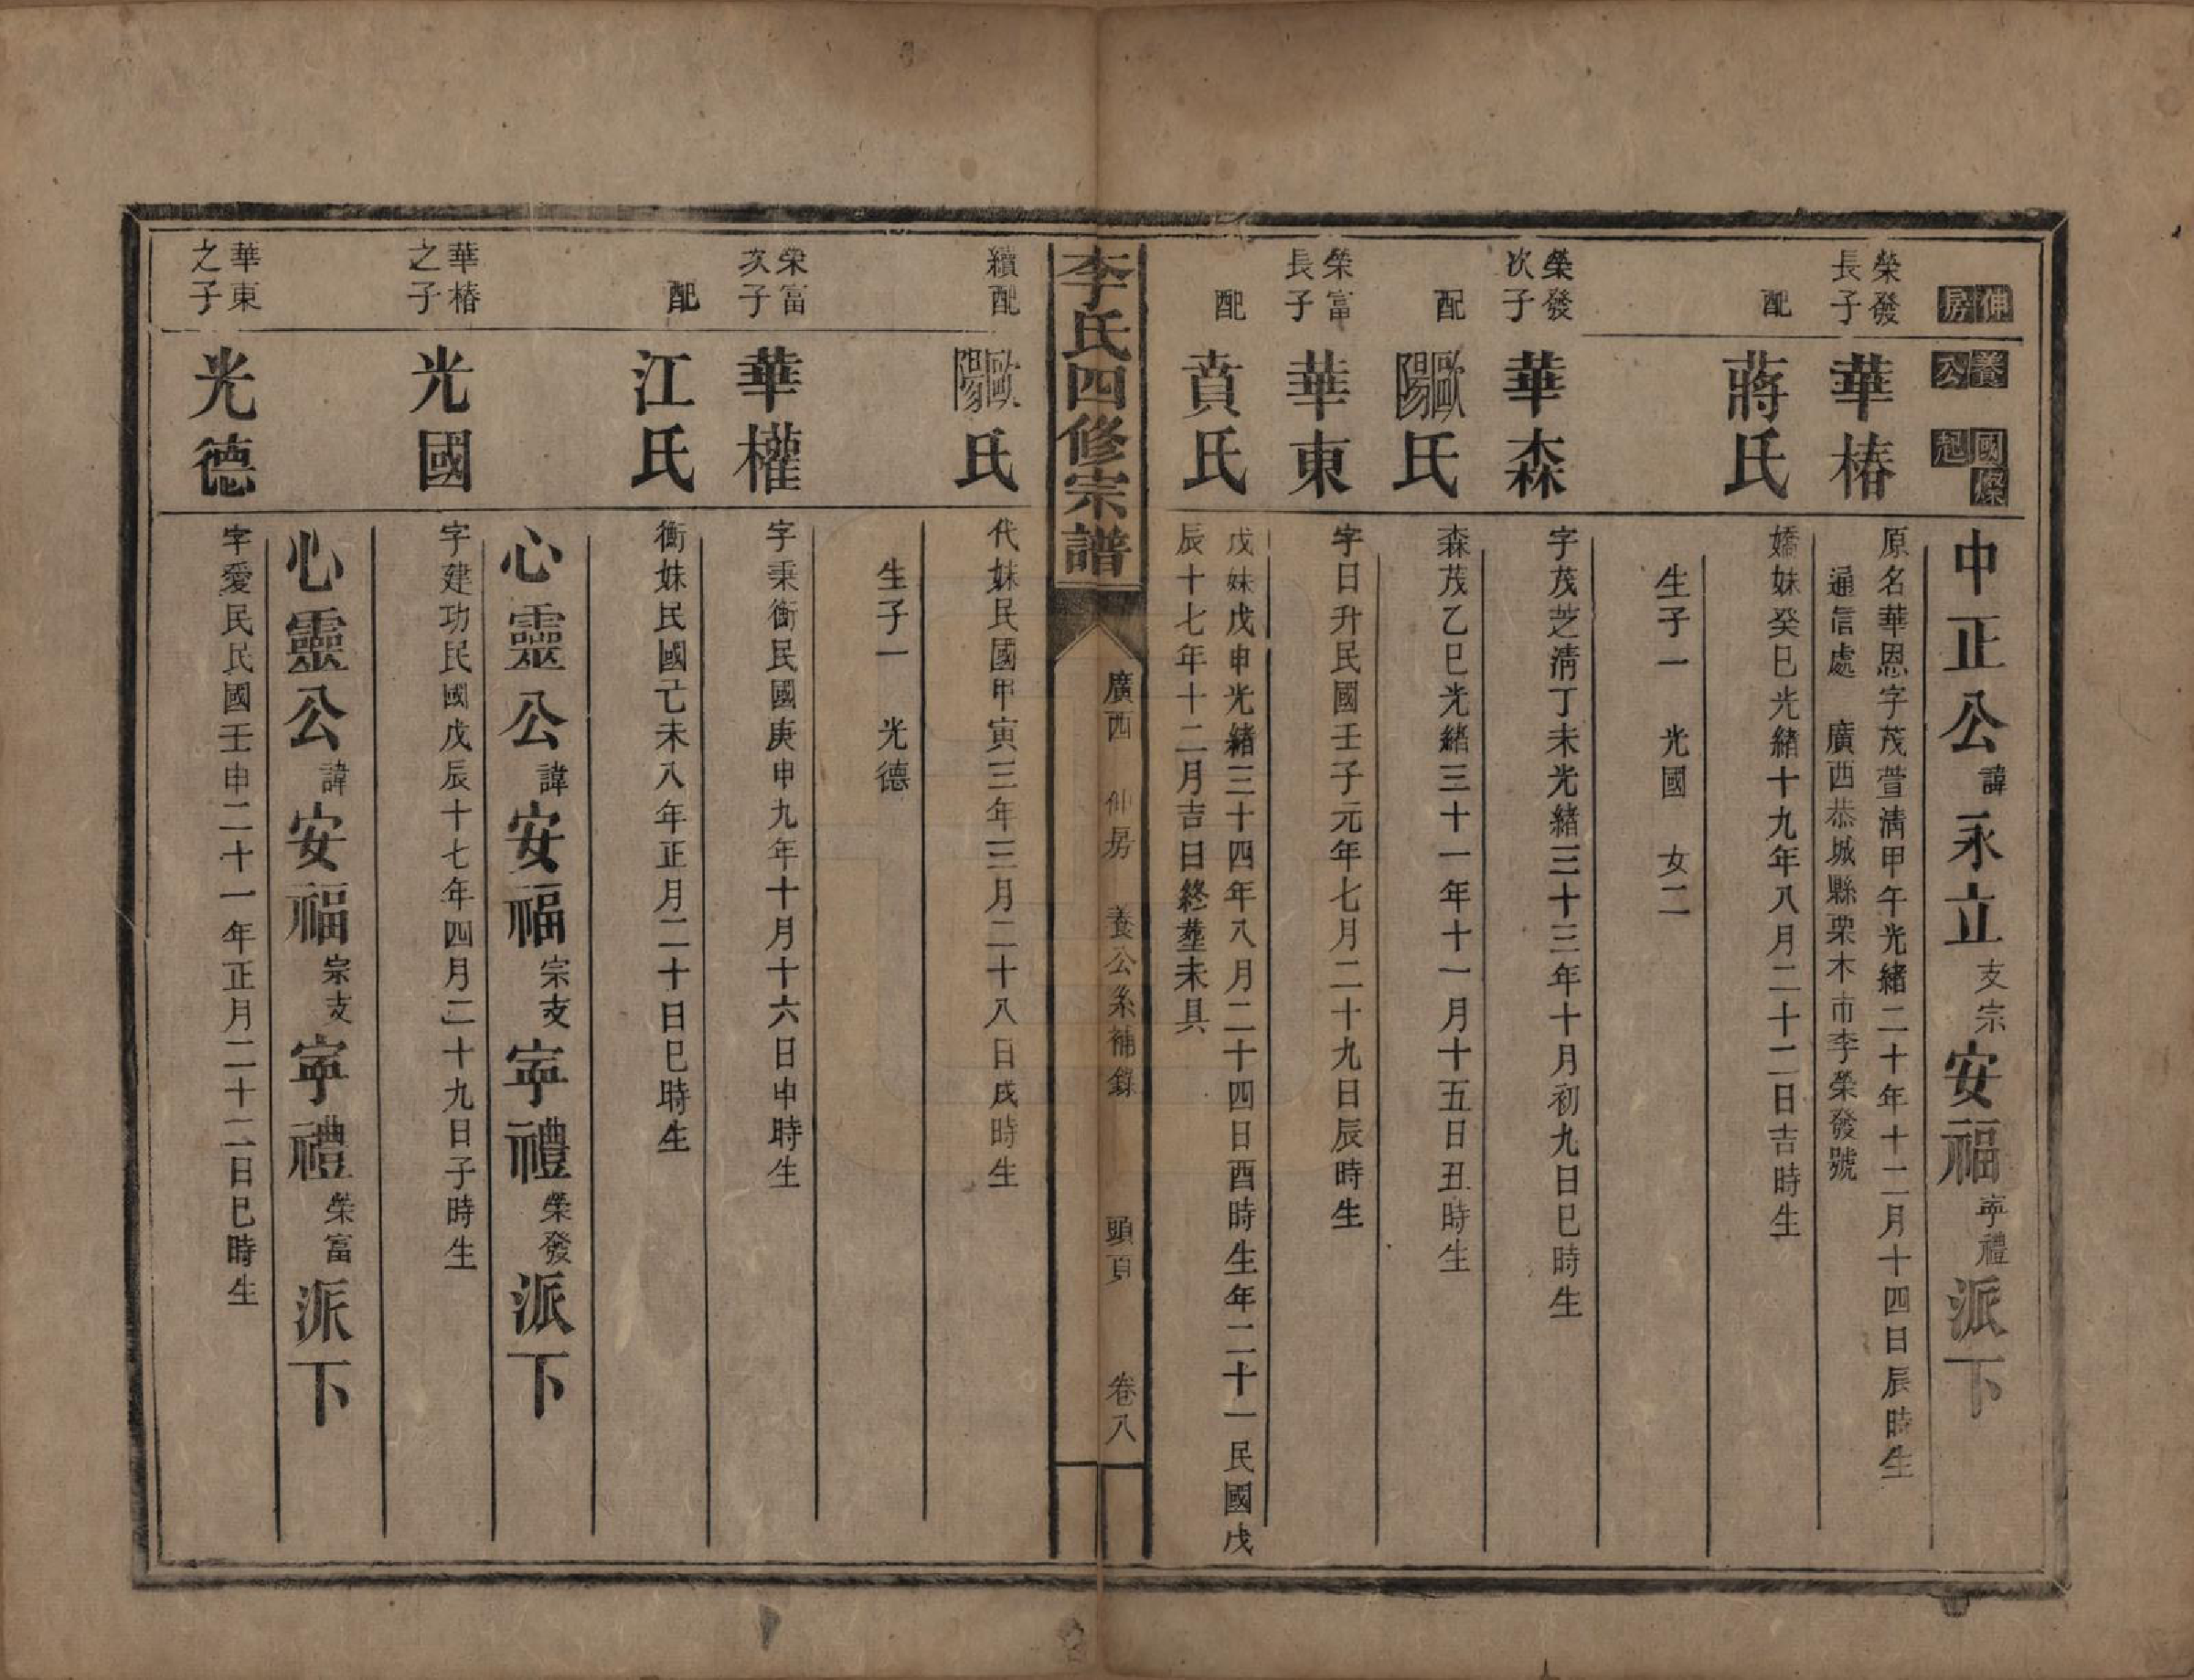 仲房
養公
國燦起
中正公諱永立支宗安福寧禮派下
榮發長子
華椿
原名華恩字茂萱清甲午光緒二十年十二月十四日辰時生
通信處 廣西恭城縣栗木市李榮發號
配
蔣氏
嬌妹癸巳光緒十九年八月二十二日吉時生
生子一 光國 女二
榮發次子
華森
字茂芝清丁未光緒三十三年十月初九日巳時生
配
歐陽氏
森茂乙巳光緒三十一年十一月十五日丑時生
榮富長子
華東
字日升民國壬子元年七月二十九日辰時生
配
賁氏
戊妹戊申光緒三十四年八月二十四日酉時生年二十一民國戊
辰十七年十二月吉日終塟未具
李氏四修宗譜
廣西 仲房 養公系補錄 頭頁 卷八
續配
歐陽氏
代妹民國甲寅三年三月二十八日戌時生
生子一 光德
榮富次子
華權
字秉衡民國庚申九年十月十六日申時生
配
江氏
衡妹民國己未八年正月二十日巳時生
心靈公諱安福宗支寧禮榮發派下
華椿之子
光國
字建功民國戊辰十七年四月二十九日子時生
心靈公諱安福宗支寧禮榮富派下
華東之子
光德
字愛民民國壬申二十一年正月二十二日巳時生